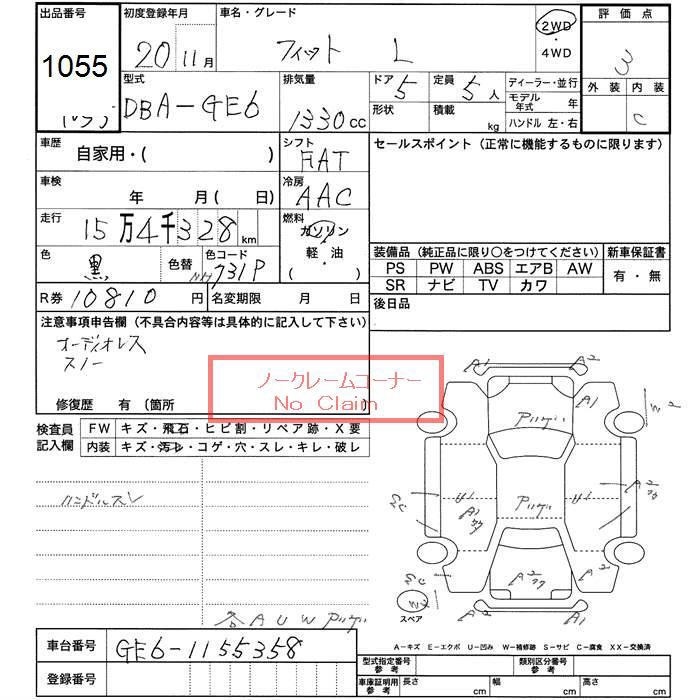 出品番号 初度登録年月 車名・グレード 2WD ・ 4WD 評価点
1055 20 11月 フィット L 3
外装 内装 C
型式 排気量 ドア 5 定員 5人 ディーラー・並行
DBA-GE6 1330cc 形状 積載 kg モデル年式 年
ハンドル 左・右
車歴 自家用・( ) シフト FAT セールスポイント (正常に機能するものに限ります)
車検 年 月 ( 日) 冷房 AAC
走行 15万4千328km 燃料 ガソリン 軽油 ( )
色 黒 色替 色コード NH731P
装備品 (純正品に限り○をつけてください) 新車保証書
PS PW ABS エアB AW 有・無
SR ナビ TV カワ
R券 10810円 名変期限 月 日 後日品
注意事項申告欄 (不具合内容等は具体的に記入して下さい)
オーディオレス
スノー
ノークレームコーナー
No Claim
修復歴 有 〔箇所
検査員記入欄 FW キズ・飛石・ヒビ割・リペア跡・X要
内装 キズ・汚レ・コゲ・穴・スレ・キレ・破レ
ハンドルスレ
各AUWアリ
A1 A2
A1
U1 U1
A1
A2
A2 A1
スペア
A-キズ E-エクボ U-凹み W-補修跡 S-サビ C-腐食 XX-交換済
車台番号 GE6-1155358
登録番号
型式指定番号 参考 類別区分番号 参考
車庫証明用 参考 長さ cm 幅 cm 高さ cm